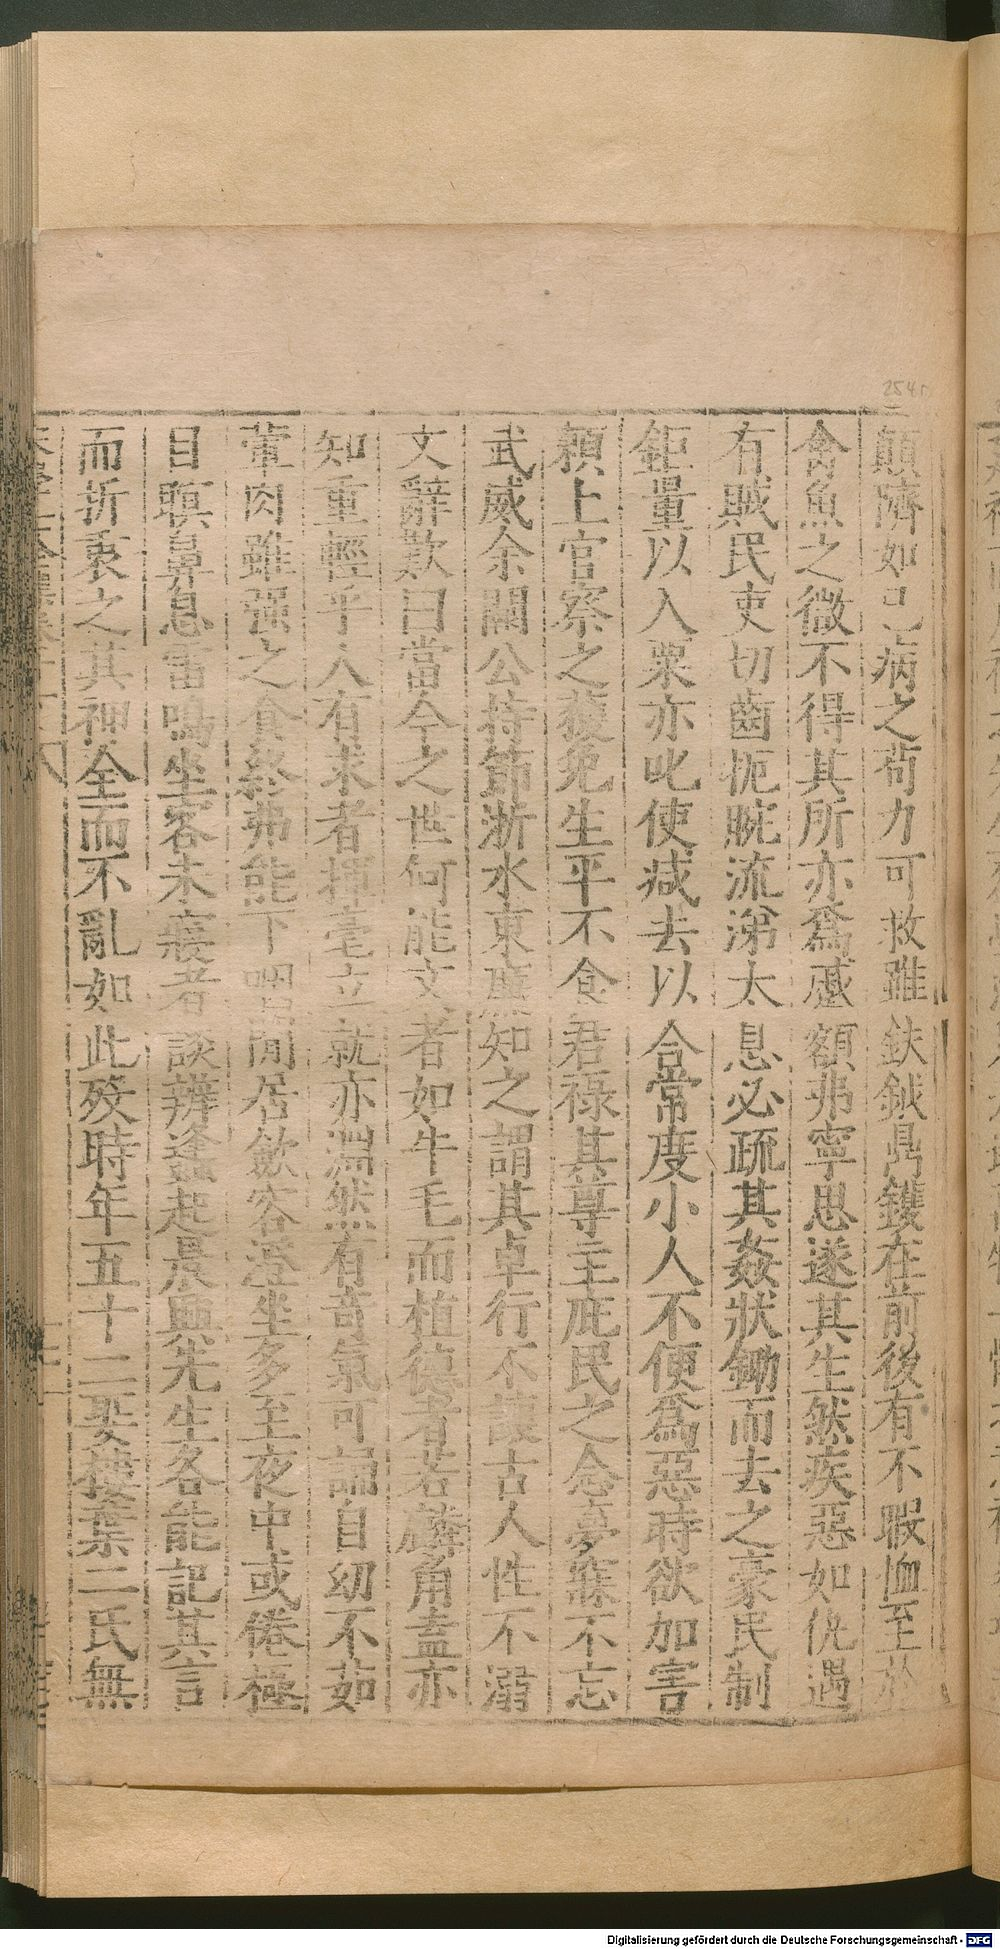 254r
顛濟如己病之苟力可救雖鈇鉞鼎鑊在前後有不暇恤至於
禽魚之微不得其所亦爲慼額弗寧思遂其生然疾惡如仇遇
有賊民吏切齒扼腕流涕太息必疏其姦狀鋤而去之豪民制
鉅量以入粟亦叱使減去以合常度小人不便爲惡時欲加害
頼上官察之獲免生平不食君祿其尊主庇民之念夢寐不忘
武威余闕公持節浙水東廉知之謂其卓行不諴古人性不溺
文辭歎曰當今之世何能文者如牛毛而植德者若麟角盖亦
知重輕乎人有求者揮毫立就亦淵然有奇氣可誦自幼不茹
葷肉雖强之食終弗能下咽閒居歛容澄坐多至夜中或倦極
目瞑鼻息雷鳴坐客未寢者談辨逢起晨興先生各能記其言
而折衷之其神全而不亂如此歿時年五十二娶樓葉二氏無
Digitalisierung gefördert durch die Deutsche Forschungsgemeinschaft - DFG